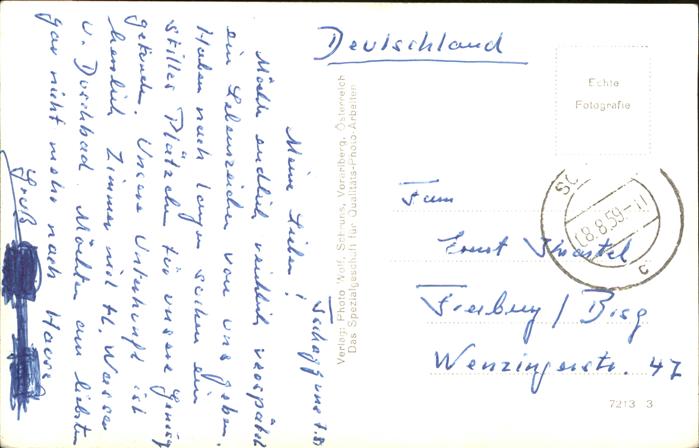 Deutschland
Echte
Fotografie
Tschagguns 7.8.
Meine Lieben!
Möchte endlich reichlich verspätet
ein Lebenszeichen von uns geben.
Haben nach langem suchen ein
stilles Plätzchen für unsere Genüg
gefunden. Unsere Unterkunft ist
herrlich Zimmer mit fl. Wasser
u. Duschbad. Möchten am liebsten
gar nicht mehr nach Hause
Gruß
Verlag: Photo Wolf, Schruns, Vorarlberg, Österreich
Das Spezialgeschäft für Qualitäts-Photo-Arbeiten
SC
08.8.59-11
c
Fam
Ernst
Freiburg / Brsg
Wenzingerstr. 47
7213 3